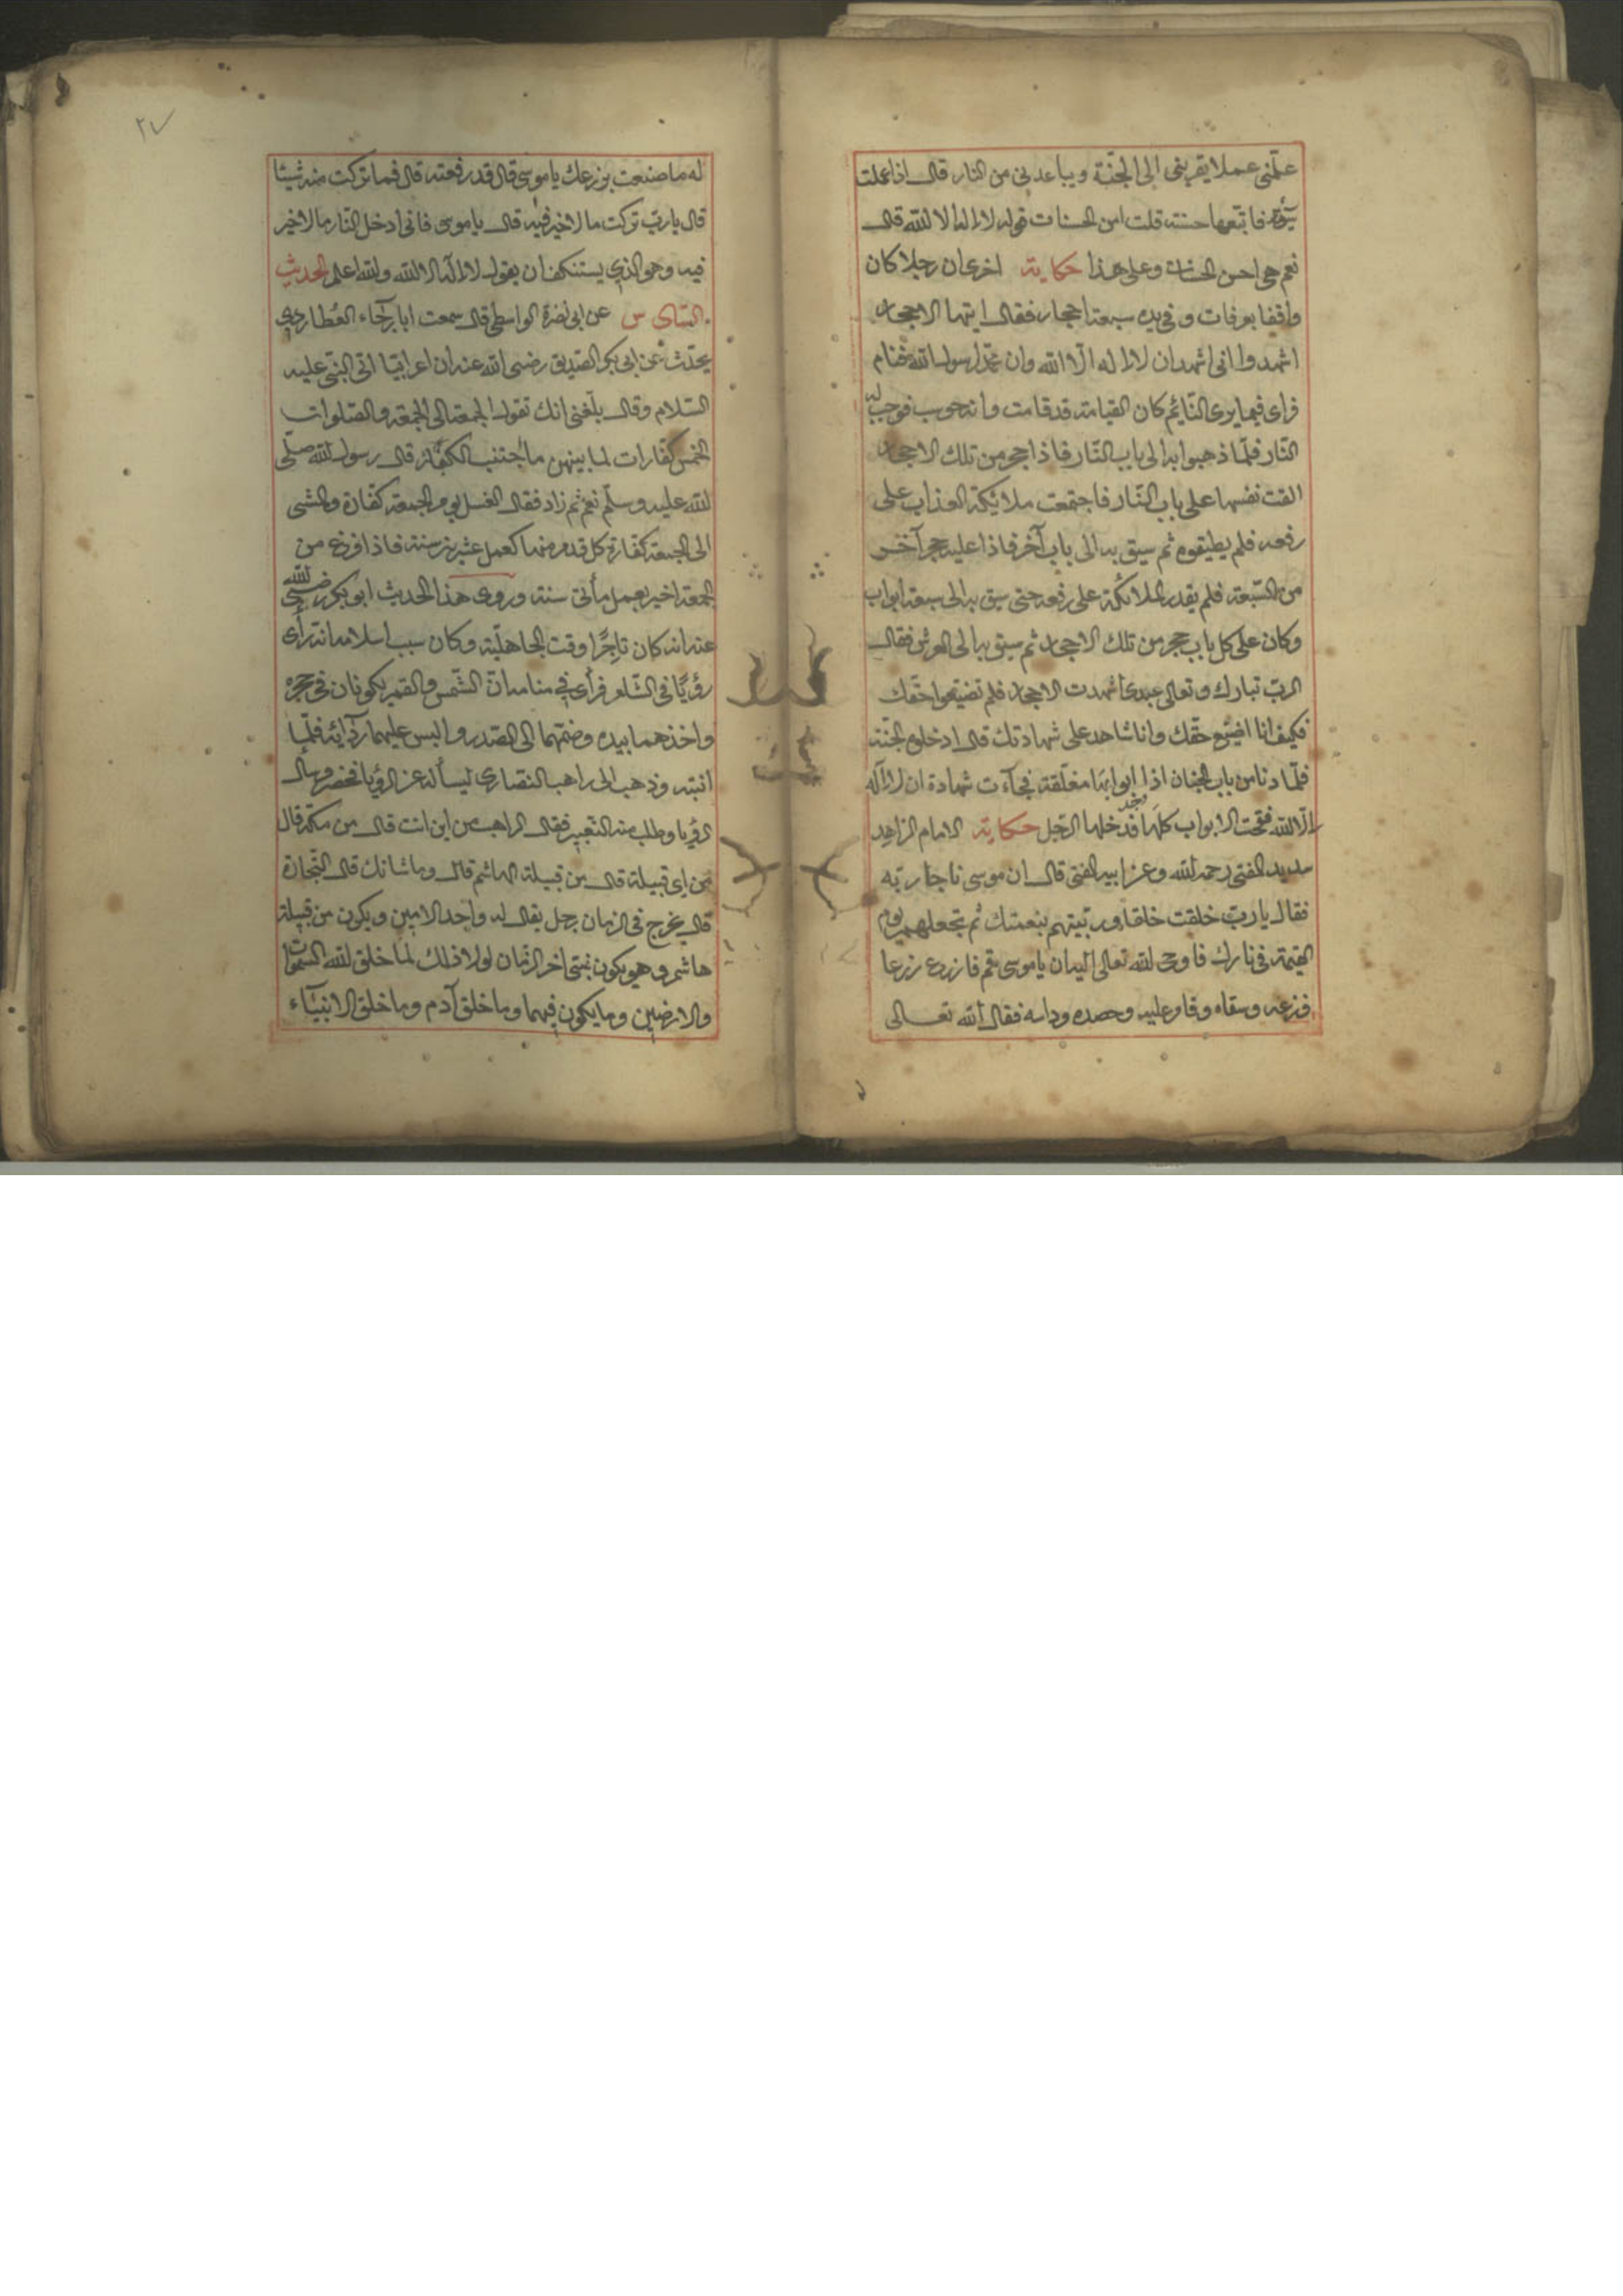 علّمني عملا يقربني الى الجنّة ويباعدني من النار قال اذا عملت
سيّئة فاتبعها حسنة قلت امن الحسنات قوله لا اله الا الله قال
نعم هي احسن الحسنات وعلى هذا حكاية اخرى ان رجلا كان
واقفا بعرفات وفي يده سبعة احجار فقال ايتها الاحجار
اشهدوا انى اشهد ان لا اله الّا الله وان محمّدا رسول الله فنام
فراى فيما يرى النّائم كان القيامة قد قامت وانه حوسب فوجب له
النّار فلمّا ذهبوا به الى باب النّار فاذا حجر من تلك الاحجار
القت نفسها على باب النّار فاجتمعت ملائيكة العذاب على
رفعه فلم يطيقوه ثم سيق به الى باب آخر فاذا عليه حجر آخر
من السّبعة فلم يقدر الملائكة على رفعه حتى سيق به الى سبعة ابواب
وكان على كل باب حجر من تلك الاحجار ثم سيق به الى العرش فقال
الربّ تبارك وتعالى عبدى اشهدت الاحجار فلم تضيّعوا حقّك
فكيف انا اضيّع حقّك وانا شاهد على شهادتك قال ادخلوه الجنّة
فلمّا دنا من باب الجنان اذا ابوابها مغلّقة فجآءت شهادة ان لا اله
الّا الله ففتحت الابواب كلّها فدخلها الرّجل حكاية الامام الزاهد
رحمه الله وعن ابيه المفتى قال ان موسى ناجا ربّه
فقال يا ربّ خلقت خلقا وربّيتهم بنعمتك ثم تجعلهم يوم
القيمة في نارك فاوحى الله تعالى اليه ان يا موسى قم فازرع زرعا
فزرعه وسقاه وقام عليه وحصده وداسه فقال الله تعالى
٢٧
له ما صنعت بزرعك يا موسى قال قد رفعته قال فما تركت منه شيئا
قال يا ربّ تركت ما لا خير فيه قال يا موسى فانى ادخل النّار ما لا خير
فيه وهو الذي يستنكف ان يقول لا اله الا الله والله اعلم الحديث
السّادس عن ابى نضرة الواسطى قال سمعت ابا رجآء العُطاردي
يحدّث عن ابى بكر الصّديق رضى الله عنه ان اعرابيّا اتى النّبى عليه
السّلام وقال بلغنى انك تقول الجمعة الى الجمعة والصّلوات
الخمس كفّارات لما بينهن ما اجتنب الكبائر قال رسول الله صلّى
الله عليه وسلّم نعم ثم زاد فقال الغسل يوم الجمعة كفّارة والمشى
الى الجمعة كفّارة كل قدم منها كعمل عشرين سنة فاذا فرغ من
الجمعة اخير بعمل مأتى سنة وروى هذا الحديث ابو بكر رضى الله
عنه انه كان تاجرًا وقت الجاهليّة وكان سبب اسلامه انّه رأى
رؤيًا في الشّام فرأى في منامه انّ الشّمس والقمر يكونان في حجره
واخذهما بيده وضمّهما الى الصّدر والبس عليهما ردآئه فلمّا
انتبه وذهب الى راهب النّصارى ليسأله عن الرّؤيا فحضر وسأل
الرؤيا وطلب منه التعبير فقال الراهب من اين انت قال من مكّة قال
من اى قبيلة قال من قبيلة الهاشم قال وما شانك قال التّجارة
قال يخرج في الزمان رجل يقال له واحد الامين ويكون من قبيلة
هاشم وهو يكون نبىّ اخر الزّمان لولا ذلك لما خلق الله السّموات
والارضين وما يكون فيهما وما خلق آدم وما خلق الانبيآء